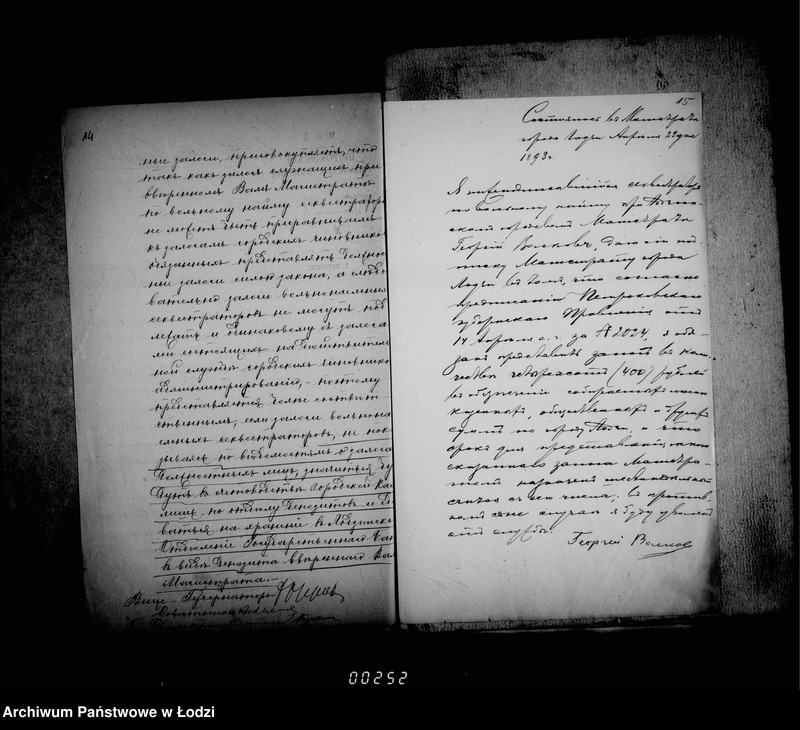 14
ные залоги, присовокупляетъ, что
такъ какъ залоги служащихъ при
ввѣренномъ Вамъ Магистратѣ
по вольному найму секвестраторовъ
не могутъ быть приравниваемы
къ залогамъ городскихъ чиновниковъ
обязанныхъ представлять должност
ные залоги силою закона, а слѣдо
вательно залоги вольнонаемныхъ
секвестраторовъ не могутъ под
лежать и одинаковому съ залога
ми состоящихъ на дѣйствитель
ной службѣ городскихъ чиновниковъ
администрированію, - поэтому
представляется болѣе соотвѣт
ственнымъ, если залоги вольнона
емныхъ секвестраторовъ, не пока
зываясь по вѣдомостямъ о залогахъ
должностныхъ лицъ, значиться бу
дутъ въ счетоводствѣ Городской Кас
лишь по отдѣлу депозитовъ и
ваться на храненіи въ Лодзинск
Отдѣленіи Государственнаго Бан
въ видѣ депозита ввѣреннаго Вам
Магистрата.
Вице-Губернаторъ
15
Состоялось въ Магистратѣ
города Лодзи Апрѣля 22 дня
1893 г.
Я нижеподписавшійся секвестраторъ
по вольному найму при Лодзин-
скомъ городскомъ Магистратѣ
Георгій Волковъ, даю сію под
писку Магистрату города
Лодзи въ томъ, что согласно
предписанію Петроковскаго
Губернскаго Правленія отъ
14 Апрѣля с. г. за № 2024, я обя-
занъ представить залогъ въ коли-
чествѣ четыреста (400) рублей
въ обезпеченіе собираемыхъ мною
казенныхъ, общественныхъ и другихъ
суммъ по городу Лодзи, и что
срокъ для представленія
сказаннаго залога Магистра-
томъ назначенъ
считая съ сего числа, въ против-
номъ же случаѣ я буду уволенъ
отъ службы.
Георгій Волковъ
00252
Archiwum Państwowe w Łodzi